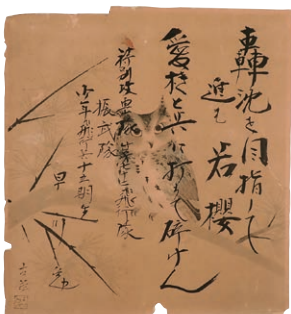 轟沈を目指して
進む 若櫻
愛機と共に打って碎けん
特別攻撃隊 第三飛行隊
振武隊
少年飛行兵十三期
早川 勉